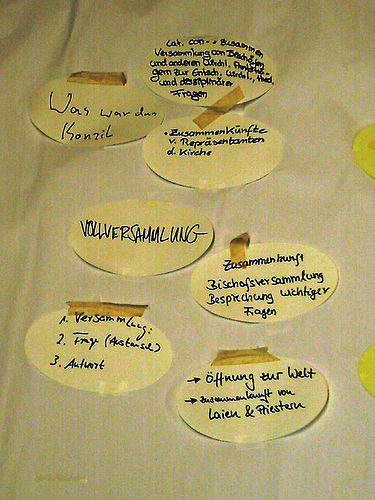 Lat. con- = zusammen
Versammlung von Bischöfen
und anderen kirchl.
gern zur Entsch. kirchl., theol.
und disziplinärer
Fragen
Was war das
Konzil
• Zusammenkünfte
v. Repräsentanten
d. Kirche
VOLLVERSAMMLUNG
Zusammenkunft
Bischofsversammlung
Besprechung wichtiger
Fragen
1. Versammlung:
2. Frage (Austausch)
3. Antwort
→ Öffnung zur Welt
→ Zusammenkunft von
Laien & Priestern